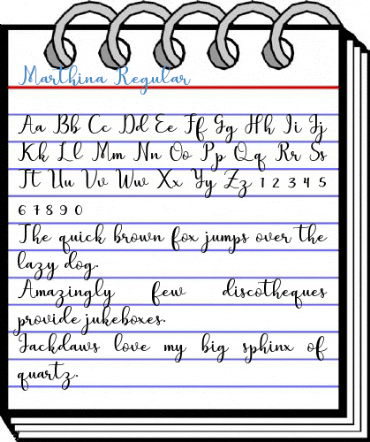 Marthina Regular
Aa Bb Cc Dd Ee Ff Gg Hh Ii Jj
Kk Ll Mm Nn Oo Pp Qq Rr Ss
Tt Uu Vv Ww Xx Yy Zz 1 2 3 4 5
6 7 8 9 0
The quick brown fox jumps over the
lazy dog.
Amazingly few discotheques
provide jukeboxes.
Jackdaws love my big sphinx of
quartz.